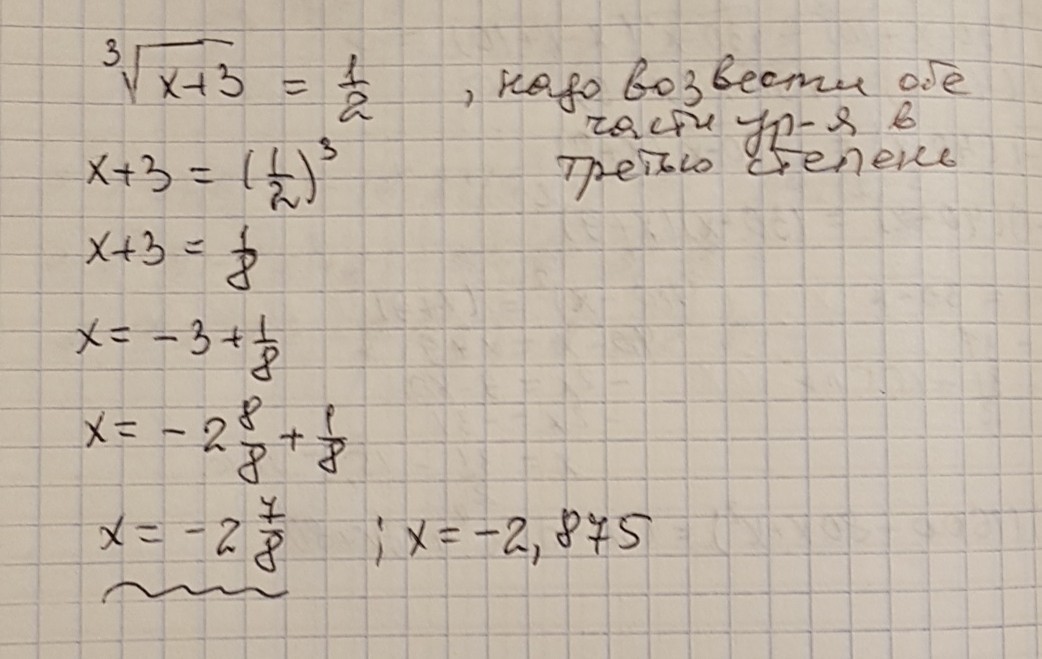 ∛(x+3) = 1/2 , надо возвести обе
части ур-я в
x+3 = (1/2)³ третью степень
x+3 = 1/8
x = -3 + 1/8
x = -2 8/8 + 1/8
x = -2 7/8 ; x = -2,875